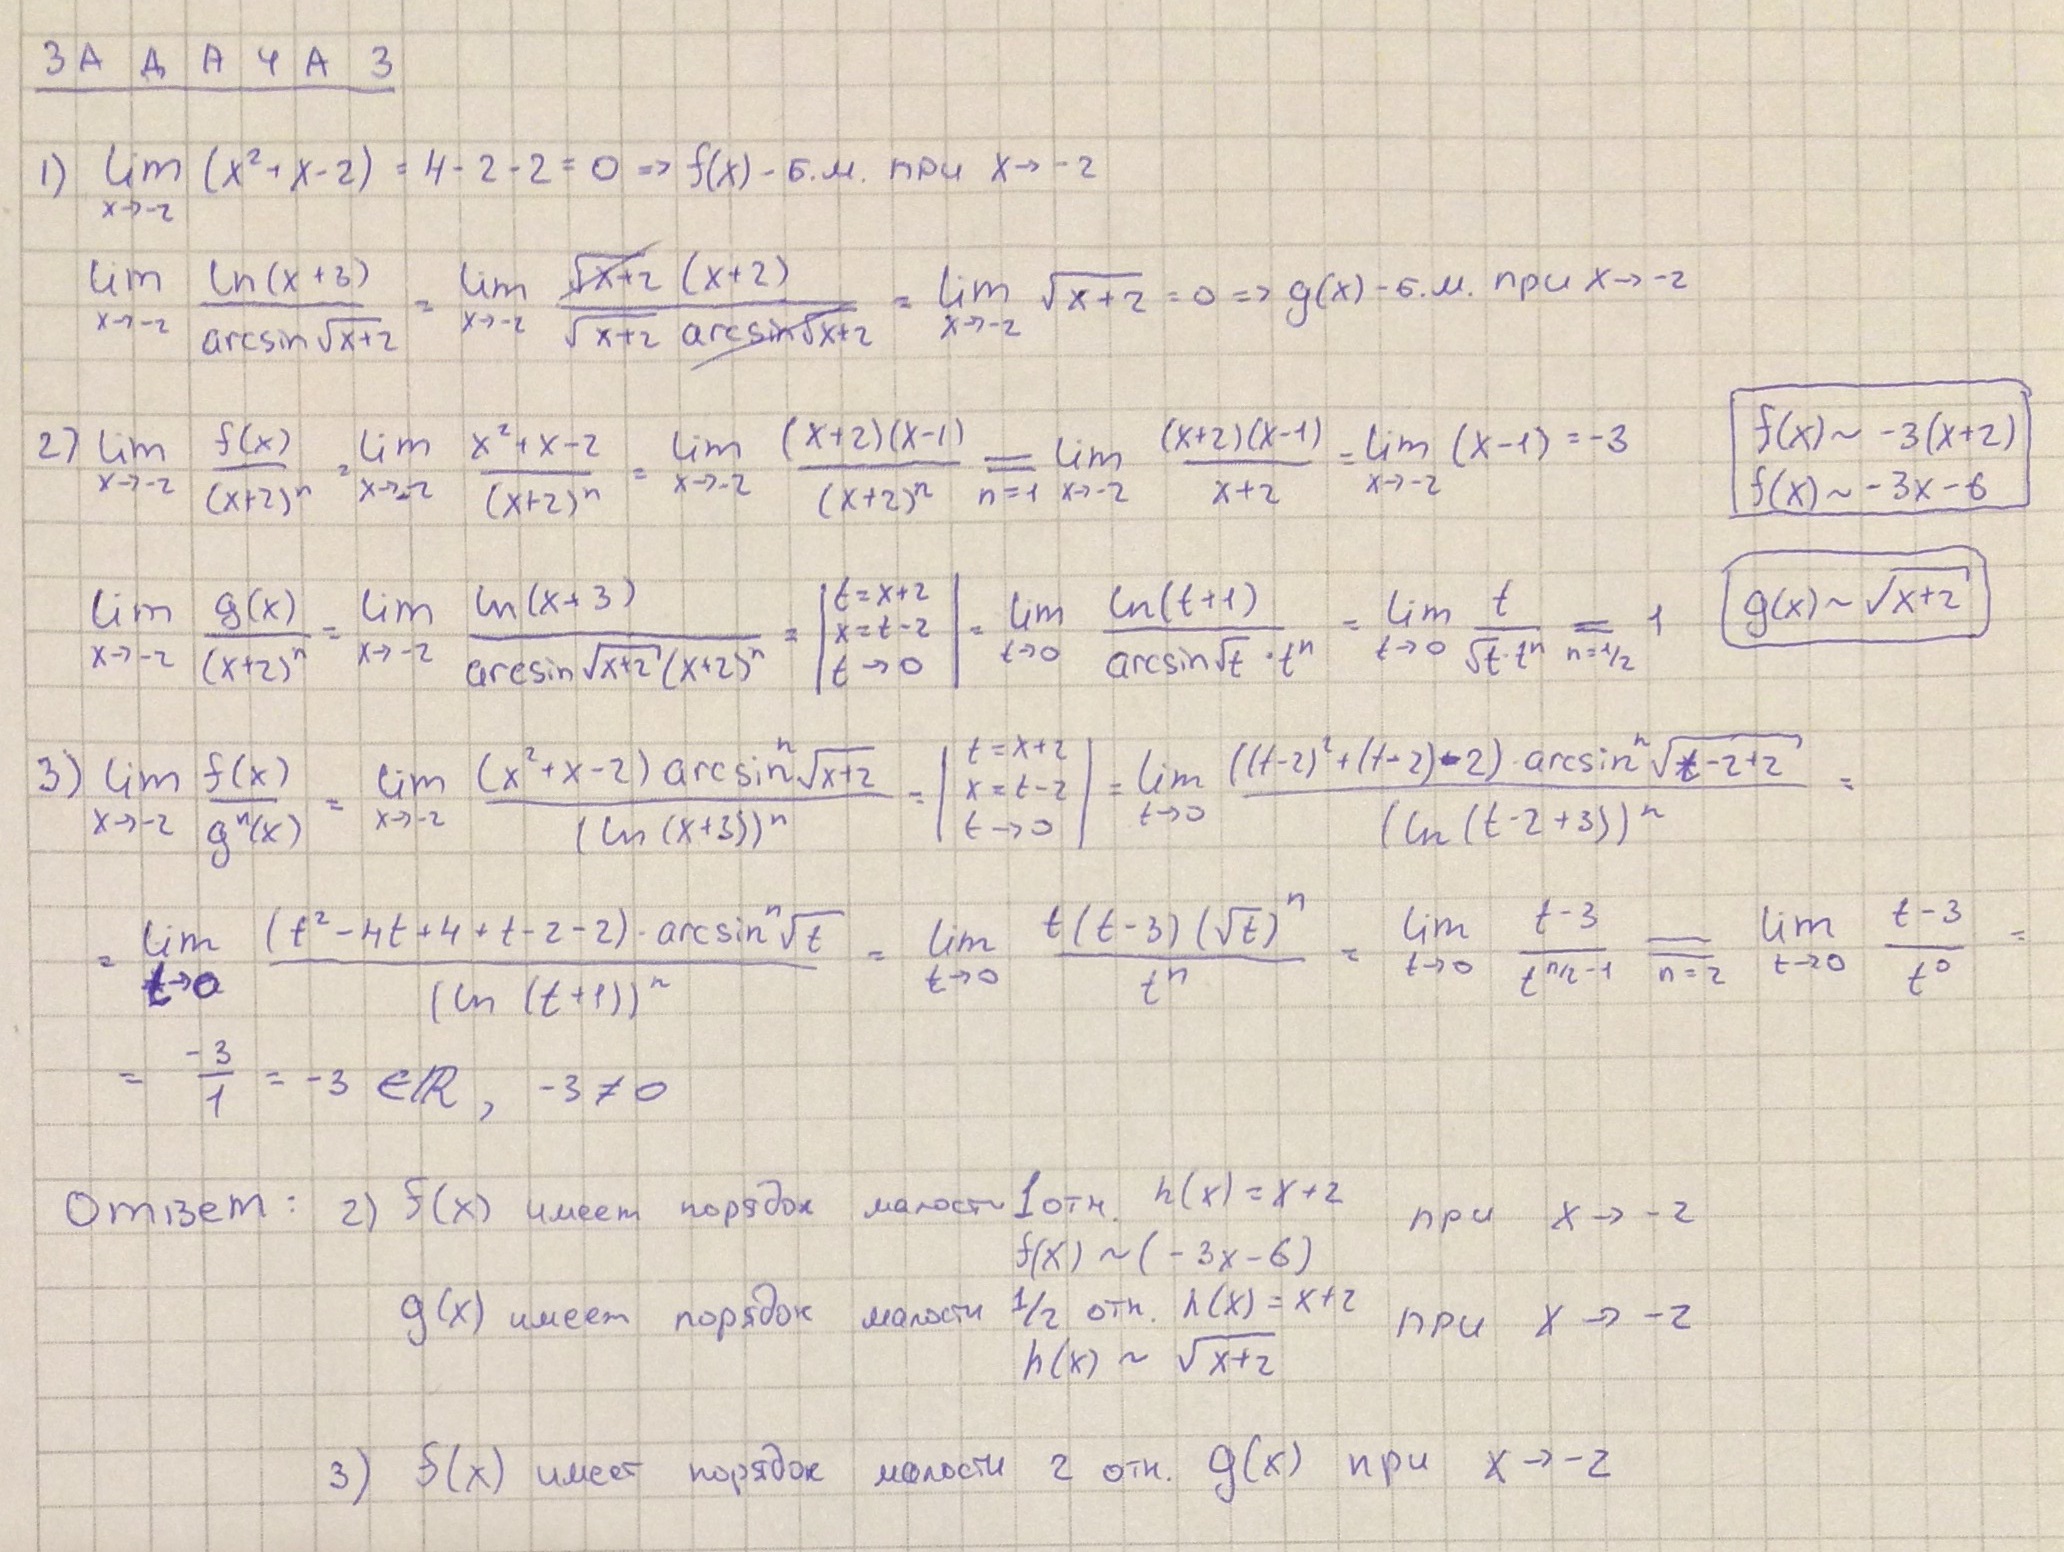 ЗАДАЧА 3
1) lim x→-2 (x²+x-2) = 4-2-2=0 => f(x) - б.м. при x→-2
lim x→-2 ln(x+3)/arcsin√(x+2) = lim x→-2 √(x+2) (x+2)/(√(x+2) arcsin√(x+2)) = lim x→-2 √(x+2) = 0 => g(x) - б.м. при x→-2
2) lim x→-2 f(x)/(x+2)ⁿ = lim x→-2 (x²+x-2)/(x+2)ⁿ = lim x→-2 (x+2)(x-1)/(x+2)ⁿ = n=1 lim x→-2 (x+2)(x-1)/(x+2) = lim x→-2 (x-1) = -3
f(x) ~ -3(x+2)
f(x) ~ -3x-6
lim x→-2 g(x)/(x+2)ⁿ = lim x→-2 ln(x+3)/(arcsin√(x+2) (x+2)ⁿ) = | t=x+2 x=t-2 t→0 | = lim t→0 ln(t+1)/(arcsin√t · tⁿ) = lim t→0 t/(√t · tⁿ) = n=1/2 1
g(x) ~ √(x+2)
3) lim x→-2 f(x)/gⁿ(x) = lim x→-2 (x²+x-2) arcsinⁿ√(x+2)/(ln(x+3))ⁿ = | t=x+2 x=t-2 t→0 | = lim t→0 ((t-2)²+(t-2)-2)·arcsinⁿ√(t-2+2)/(ln(t-2+3))ⁿ =
= lim t→0 (t²-4t+4+t-2-2)·arcsinⁿ√t/(ln(t+1))ⁿ = lim t→0 t(t-3)(√t)ⁿ/tⁿ = lim t→0 (t-3)/t^(n/2-1) = n=2 lim t→0 (t-3)/t⁰ =
= -3/1 = -3 ∈ℝ, -3≠0
Ответ: 2) f(x) имеет порядок малости 1 отн. h(x)=x+2 при x→-2
f(x) ~ (-3x-6)
g(x) имеет порядок малости 1/2 отн. h(x)=x+2 при x→-2
h(x) ~ √(x+2)
3) f(x) имеет порядок малости 2 отн. g(x) при x→-2